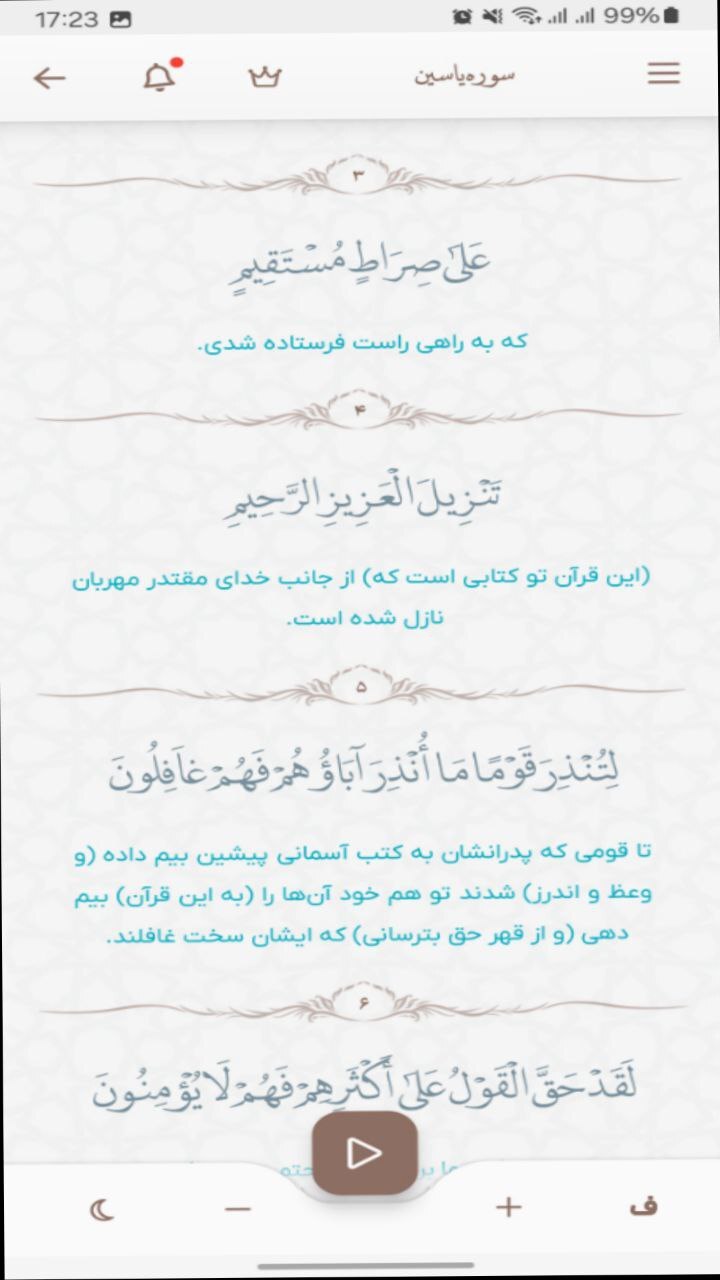 17:23 99%
سوره یاسین
۳
عَلَىٰ صِرَاطٍ مُسْتَقِيمٍ
که به راهی راست فرستاده شدی.
۴
تَنْزِيلَ الْعَزِيزِ الرَّحِيمِ
(این قرآن تو کتابی است که) از جانب خدای مقتدر مهربان
نازل شده است.
۵
لِتُنْذِرَ قَوْمًا مَا أُنْذِرَ آبَاؤُهُمْ فَهُمْ غَافِلُونَ
تا قومی که پدرانشان به کتب آسمانی پیشین بیم داده (و
وعظ و اندرز) شدند تو هم خود آن‌ها را (به این قرآن) بیم
دهی (و از قهر حق بترسانی) که ایشان سخت غافلند.
۶
لَقَدْ حَقَّ الْقَوْلُ عَلَىٰ أَكْثَرِهِمْ فَهُمْ لَا يُؤْمِنُونَ
ف + −